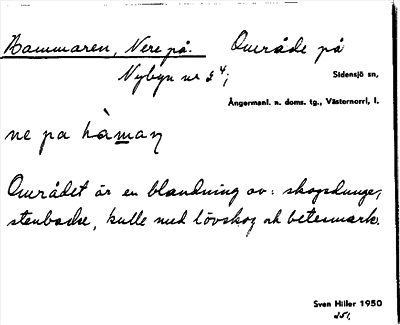 Hammaren, Nere på. Område på
Nybyn nr 3⁴;
Sidensjö sn,
Ångermanl. n. doms. tg., Västernorrl, l.
ne pa hàmaŋ
Området är en blandning av: skogsdunge,
stenbacke, kulle med lövskog och betesmark.
Sven Hiller 1950